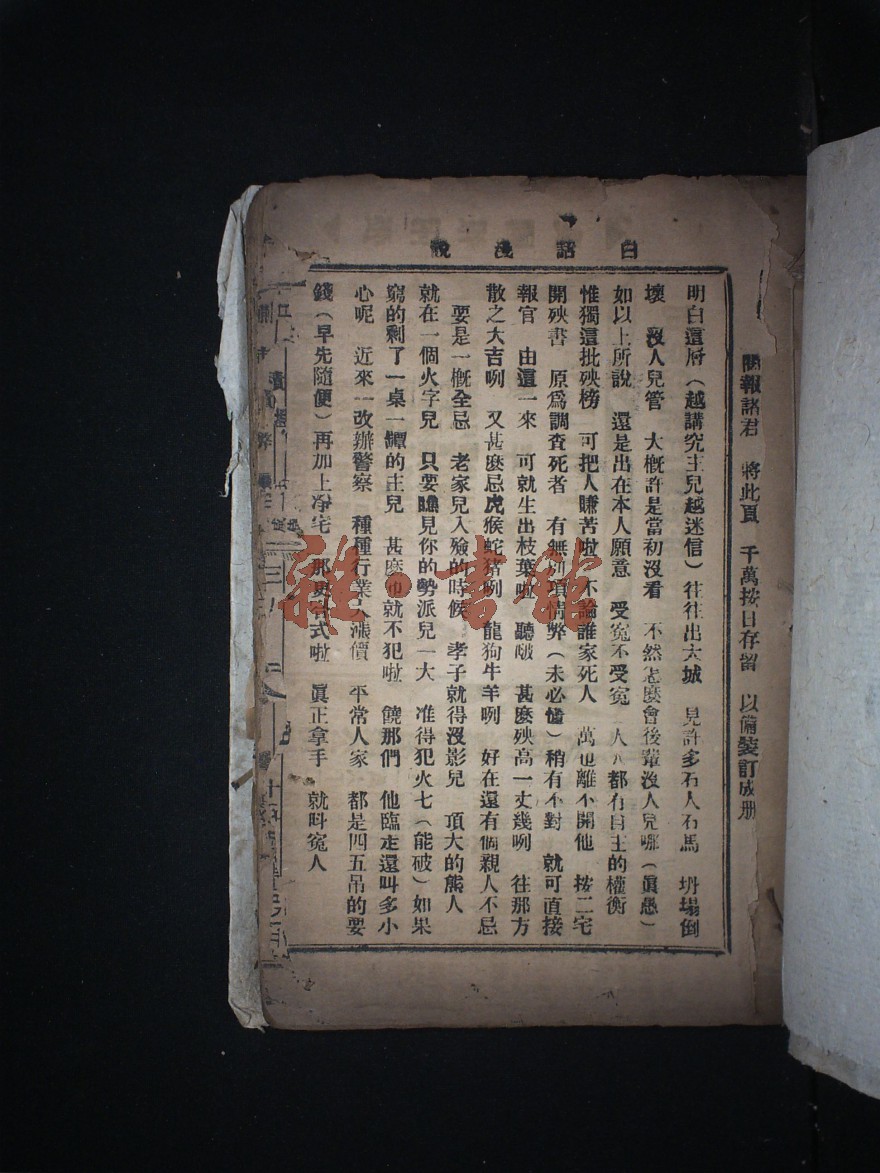 白話淺說
閱報諸君　將此頁　千萬按日存留　以備裝訂成册
明白這層（越講究主兒越迷信）往往出大城　見許多石人石馬　坍塌倒
壞　沒人兒管　大概許是當初沒看　不然怎麼會後輩沒人兒哪（眞愚）
如以上所說　還是出在本人願意　受寃不受寃　人人都有自主的權衡
惟獨這批殃榜　可把人賺苦啦　不論誰家死人　萬也離不開他　按二宅
開殃書　原爲調查死者　有無別項情弊（未必懂）稍有不對　就可直接
報官　由這一來　可就生出枝葉啦　聽啵　甚麼殃高一丈幾咧　往那方
散之大吉咧　又甚麼忌虎猴蛇猪咧　龍狗牛羊咧　好在還有個親人不忌
要是一概全忌　老家兒入殮的時候　孝子就得沒影兒　頂大的熊人
就在一個火字兒　只要瞧見你的勢派兒一大　准得犯火七（能破）如果
窮的剩了一桌一罈的主兒　甚麼也就不犯啦　饒那們　他臨走還叫多小
心呢　近來一改辦警察　種種行業大漲價　平常人家　都是四五吊的要
錢（早先隨便）再加上凈宅　那更各式啦　眞正拿手　就叫寃人
雜·書館